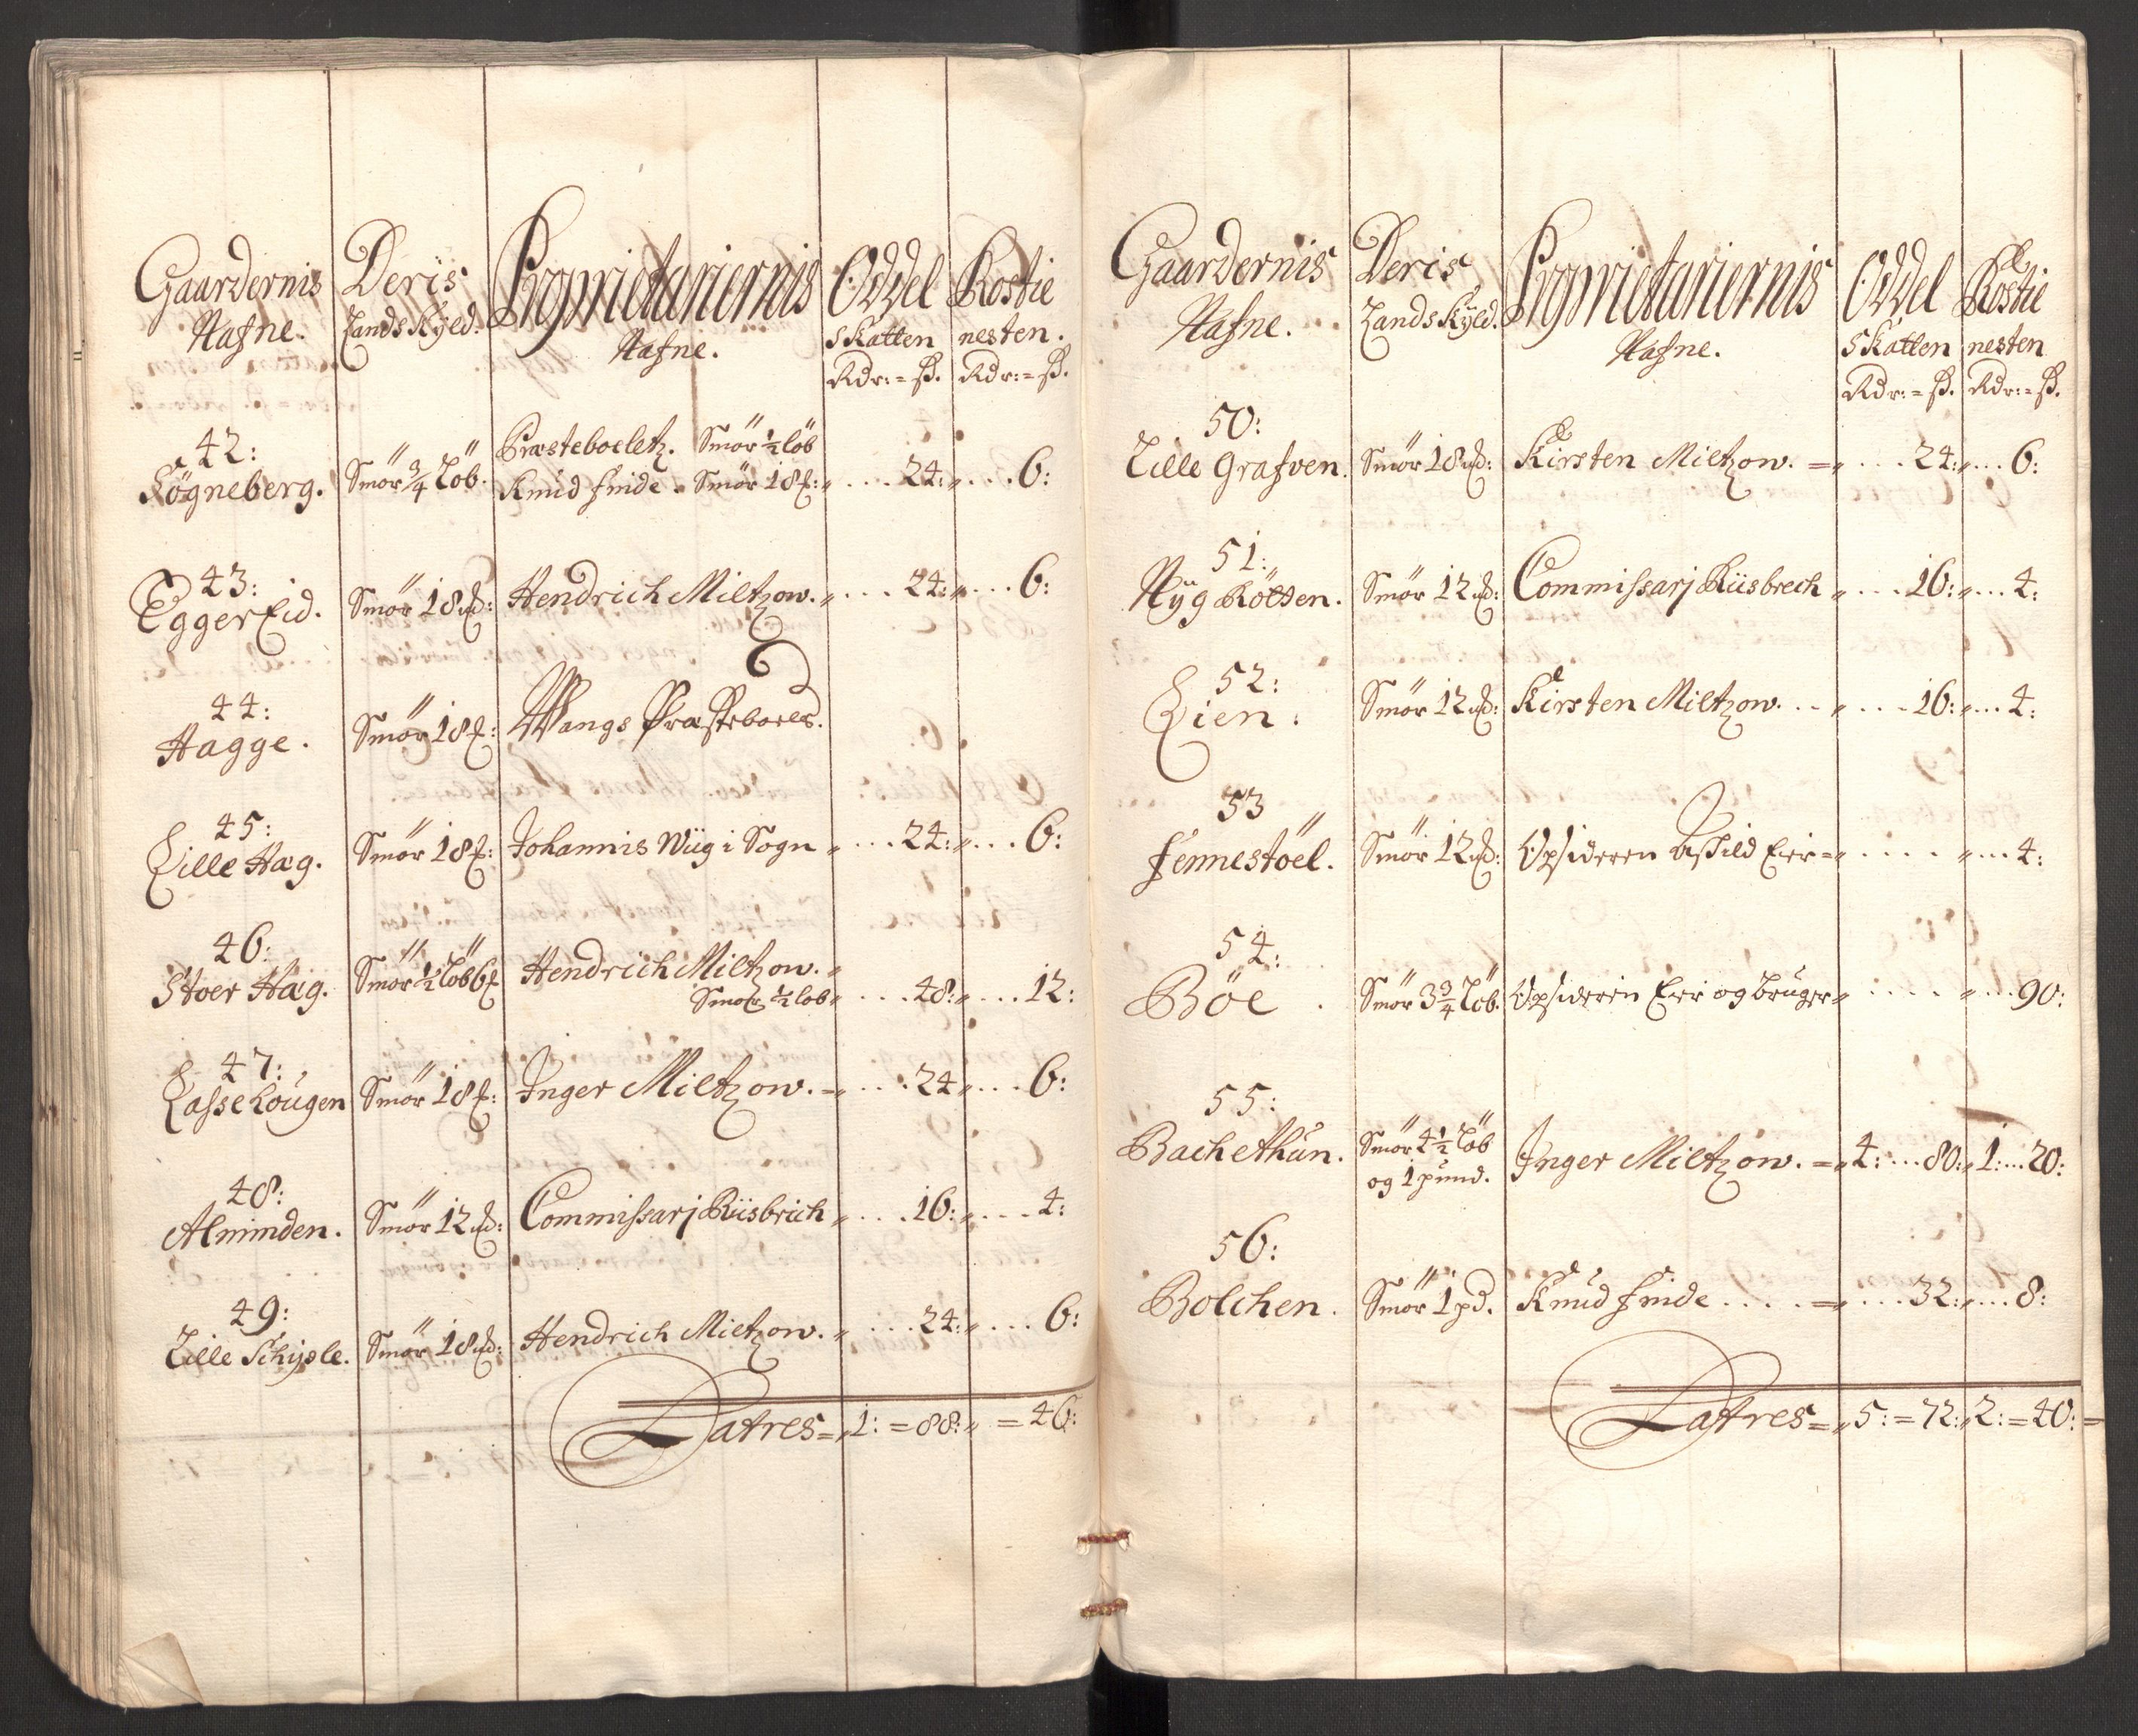 Gaardernis Nafne. | Deris Landskyld. | Proprietariernis Nafne. | Oddel Skatten Rdr: = ß. | Rostie nesten. Rdr: = ß.
42:
Præsteboeletz. Smör ½ löb
Sögneberg. Smör ¾ Löb. Knud finde. Smör 18 : " ... 24: " ... 6:
43:
Egger Eid. Smör 18 : Hendrich Miltzow. " ... 24: " ... 6:
44:
Hagge. Smör 18 : Wangs Præsteboele.
45:
Lille Hag. Smör 18 : Johannis Wiig i Sogn " ... 24: " ... 6:
46:
Stoer Hag. Smör ½ Löb 6 Hendrich Miltzow. "
Smör ½ lob " ... 48: " ... 12:
47:
Lasse Lougen Smör 18 : Inger Miltzow. = " ... 24 " ... 6:
48:
Alminden. Smör 12 : Commissarj Riisbrich " ... 16: " ... 4:
49:
Lille Schysle. Smör 18 : Hendrich Miltzow. " ... 24: " ... 6:
Latres = " 1: = 88: " = 46:
Gaardernis Nafne. | Deris Landskyld. | Proprietariernis Nafne. | Oddel Skatten Rdr: = ß. | Rostie nesten Rdr: = ß.
50:
Lille Grafven. Smör 18 : Kirsten Miltzow. = " ... 24: " ... 6:
51:
Nyg Röthen. Smör 12 : Commissarj Riisbrech " ... 16: " ... 4:
52:
Lien. Smör 12 : Kirsten Miltzow. .. " ... 16: " ... 4:
53
Fennestöel. Smör 12 : Opsideren Eier = " .... " ... 4:
54:
Böe. Smör 3¾ Löb. Opsideren Eier og bruger " .... " ... 90:
55:
Bachethun. Smör 4½ Löb
og 1 pund. Inger Miltzow. = " 4: ... 80: " 1: ... 20:
56:
Bolchen. Smör 1 pd. Knud finde .... = " ... 32: " ... 8:
Latres = " 5: = 72: " 2: = 40: =